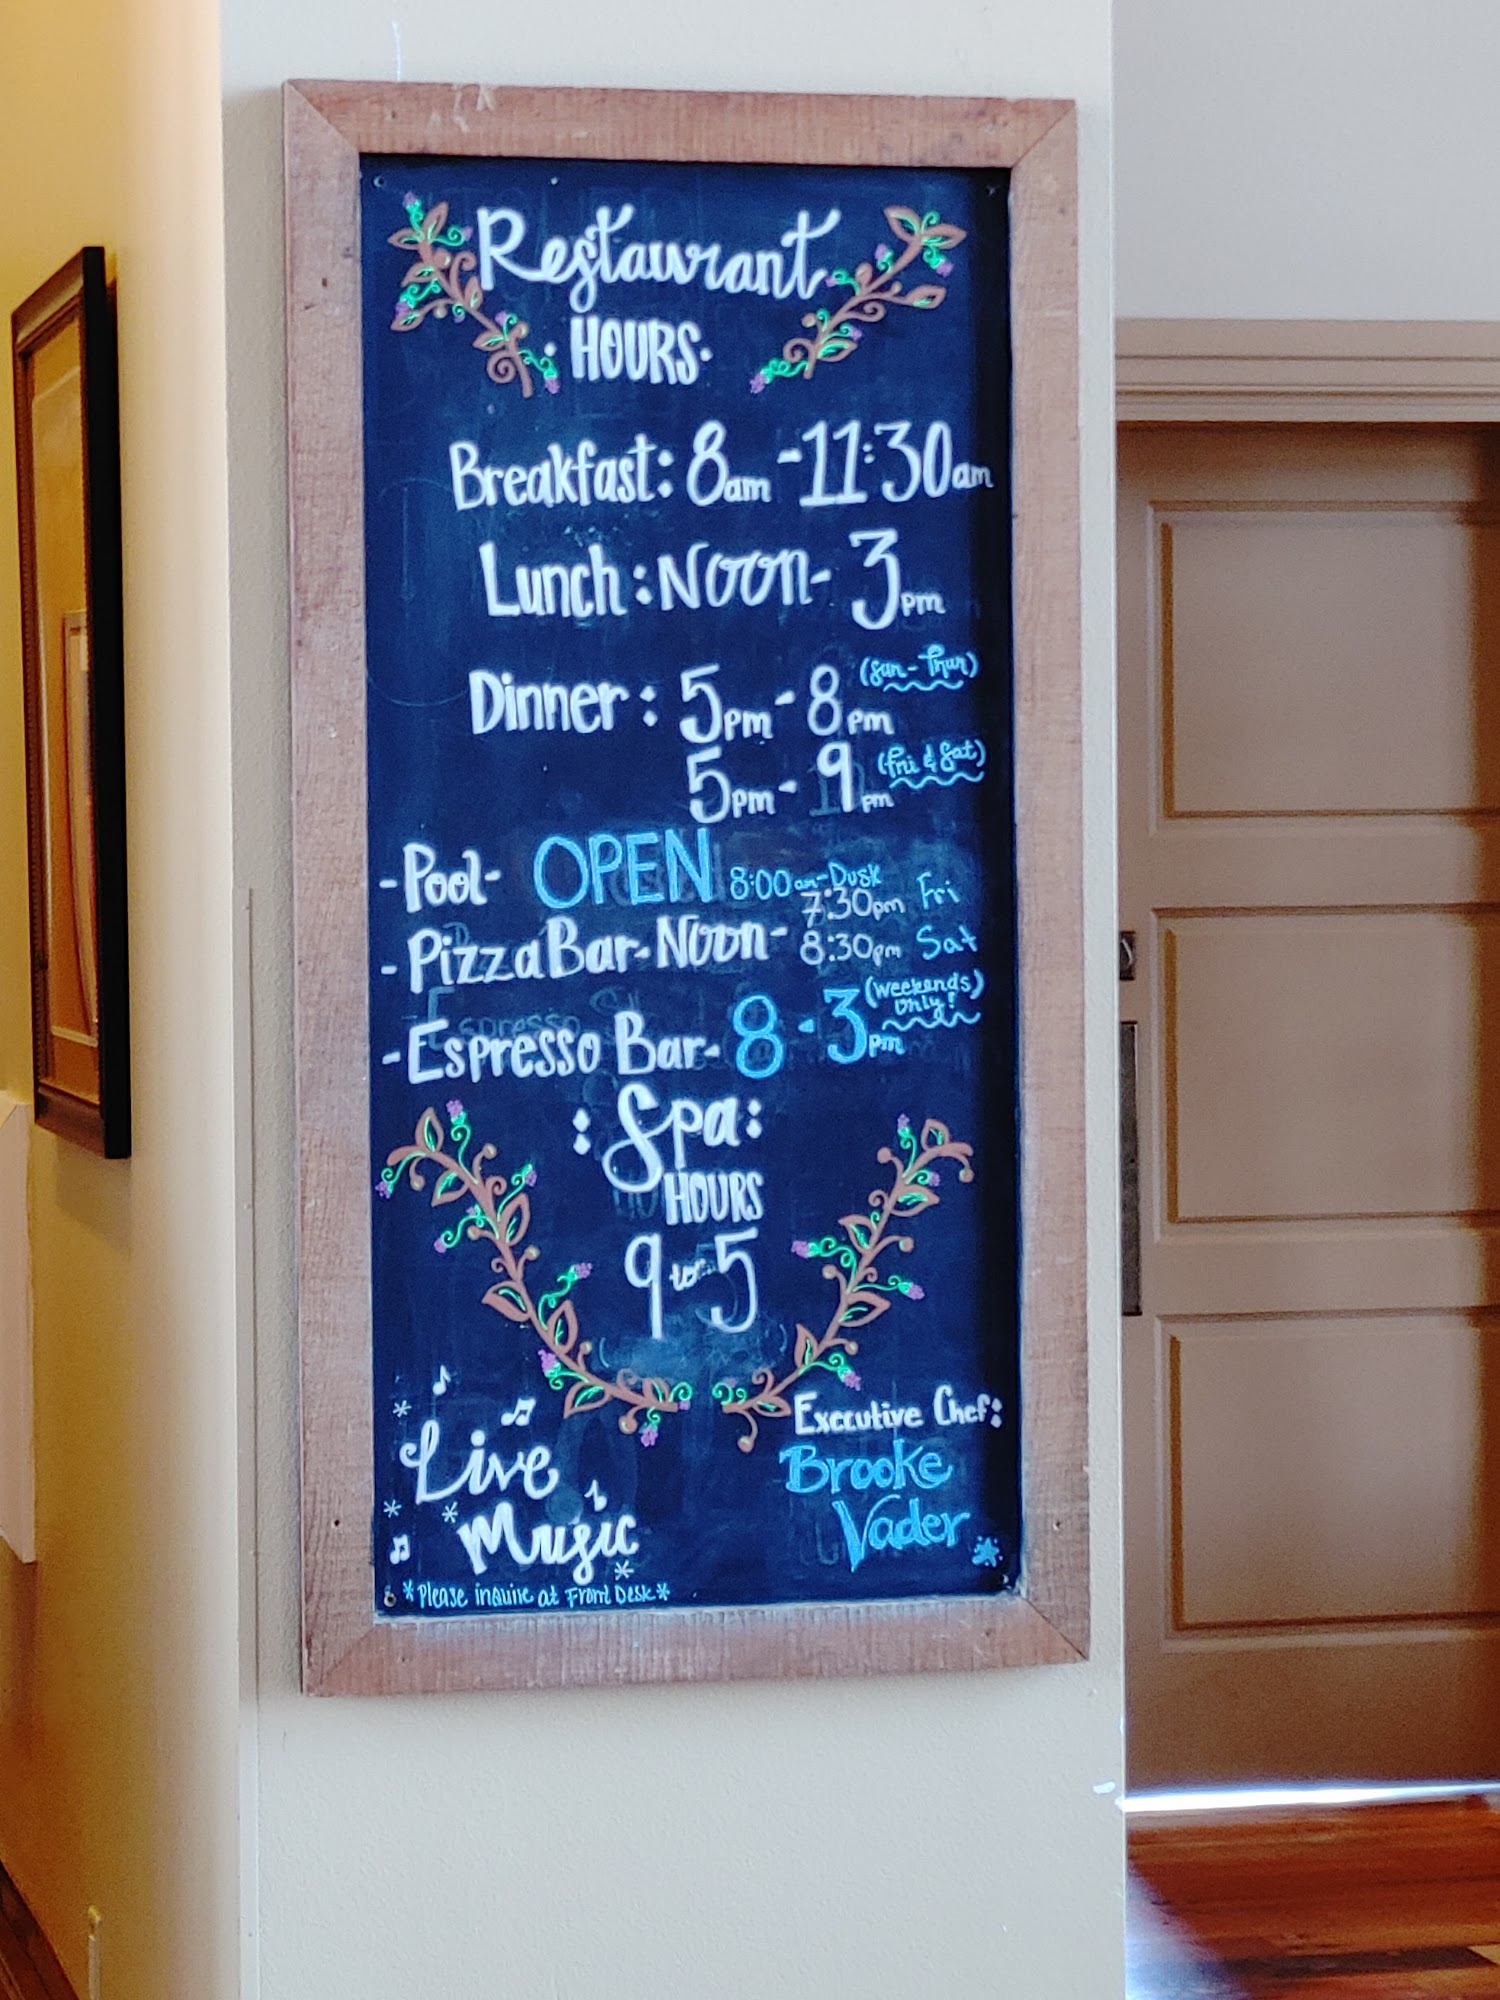 Restaurant
HOURS
Breakfast: 8am - 11:30am
Lunch: Noon - 3pm
Dinner: 5pm - 8pm (Sun - Thur)
5pm - 9pm (Fri & Sat)
- Pool - OPEN 8:00am - Dusk
- Pizza Bar - Noon - 7:30pm Fri
8:30pm Sat
- Espresso Bar - 8 - 3pm (weekends only!)
: Spa :
HOURS
9 to 5
Live
Music
*Please inquire at Front Desk*
Executive Chef:
Brooke
Vader